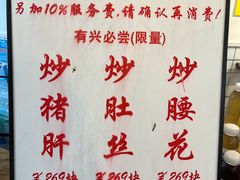 另加10%服务费,请确认再消费!
有兴必尝(限量)
炒猪肝
炒肚丝
炒腰花
¥269块
¥269块
¥269块